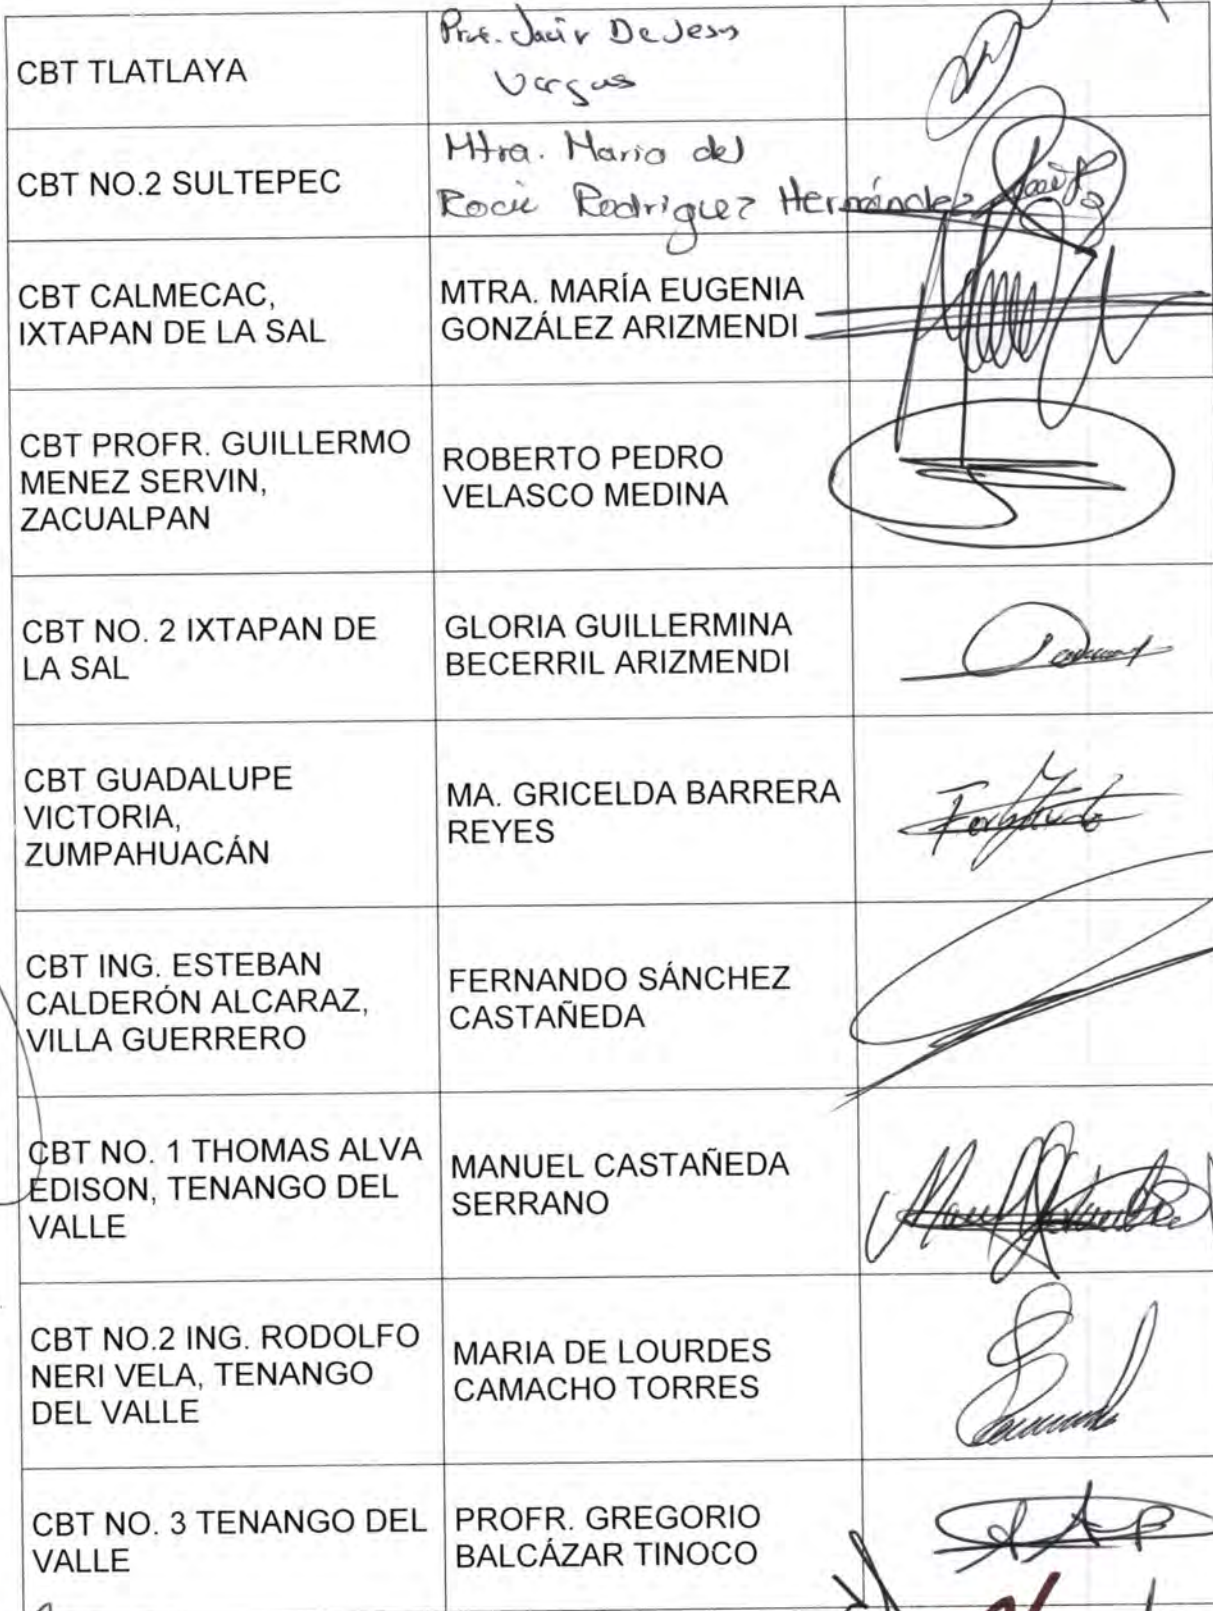 CBT TLATLAYA
Prof. Javir De Jesus
Vargas
CBT NO.2 SULTEPEC
Mtra. Maria del
Rocio Rodriguez Hernández
CBT CALMECAC,
IXTAPAN DE LA SAL
MTRA. MARÍA EUGENIA
GONZÁLEZ ARIZMENDI
CBT PROFR. GUILLERMO
MENEZ SERVIN,
ZACUALPAN
ROBERTO PEDRO
VELASCO MEDINA
CBT NO. 2 IXTAPAN DE
LA SAL
GLORIA GUILLERMINA
BECERRIL ARIZMENDI
CBT GUADALUPE
VICTORIA,
ZUMPAHUACÁN
MA. GRICELDA BARRERA
REYES
CBT ING. ESTEBAN
CALDERÓN ALCARAZ,
VILLA GUERRERO
FERNANDO SÁNCHEZ
CASTAÑEDA
CBT NO. 1 THOMAS ALVA
EDISON, TENANGO DEL
VALLE
MANUEL CASTAÑEDA
SERRANO
CBT NO.2 ING. RODOLFO
NERI VELA, TENANGO
DEL VALLE
MARIA DE LOURDES
CAMACHO TORRES
CBT NO. 3 TENANGO DEL
VALLE
PROFR. GREGORIO
BALCÁZAR TINOCO